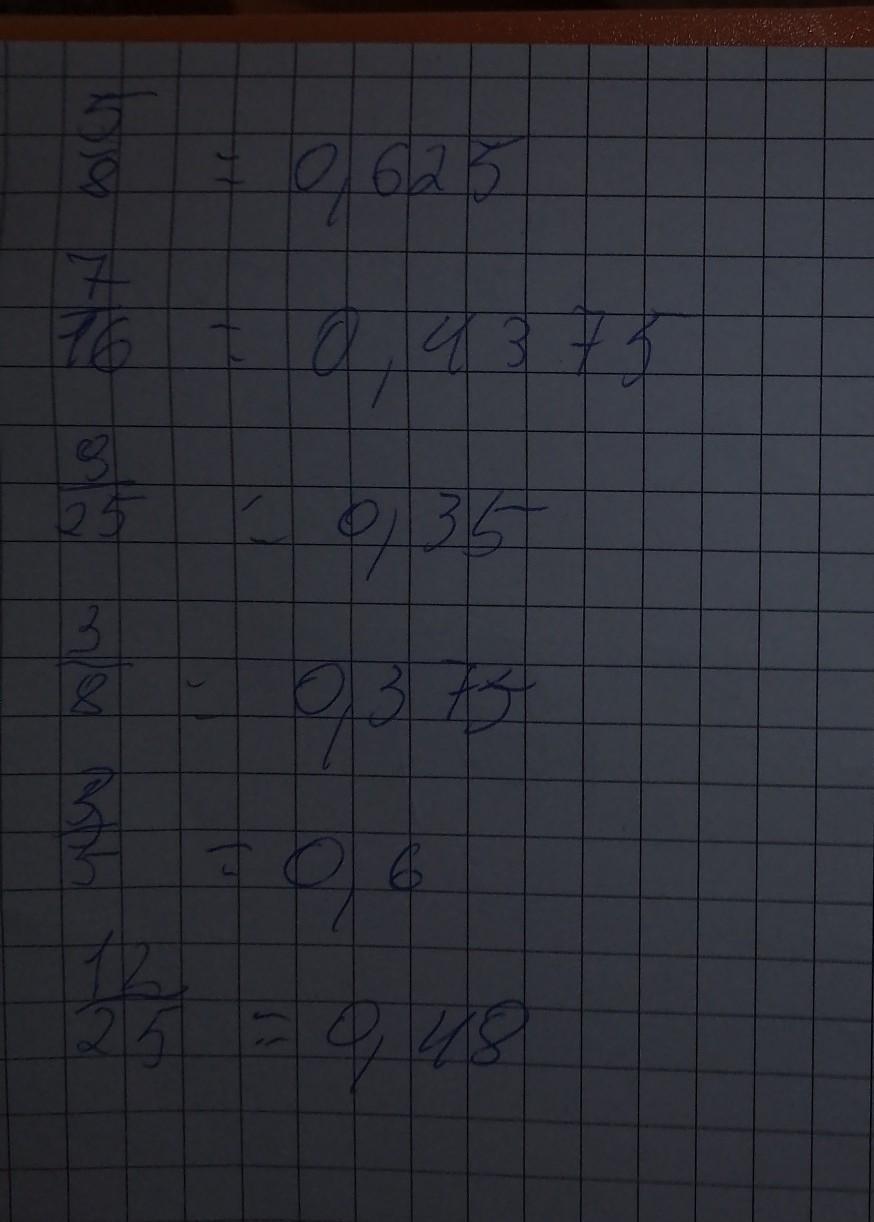 5/8 = 0,625
7/16 = 0,4375
9/25 = 0,35
3/8 = 0,375
3/5 = 0,6
12/25 = 0,48